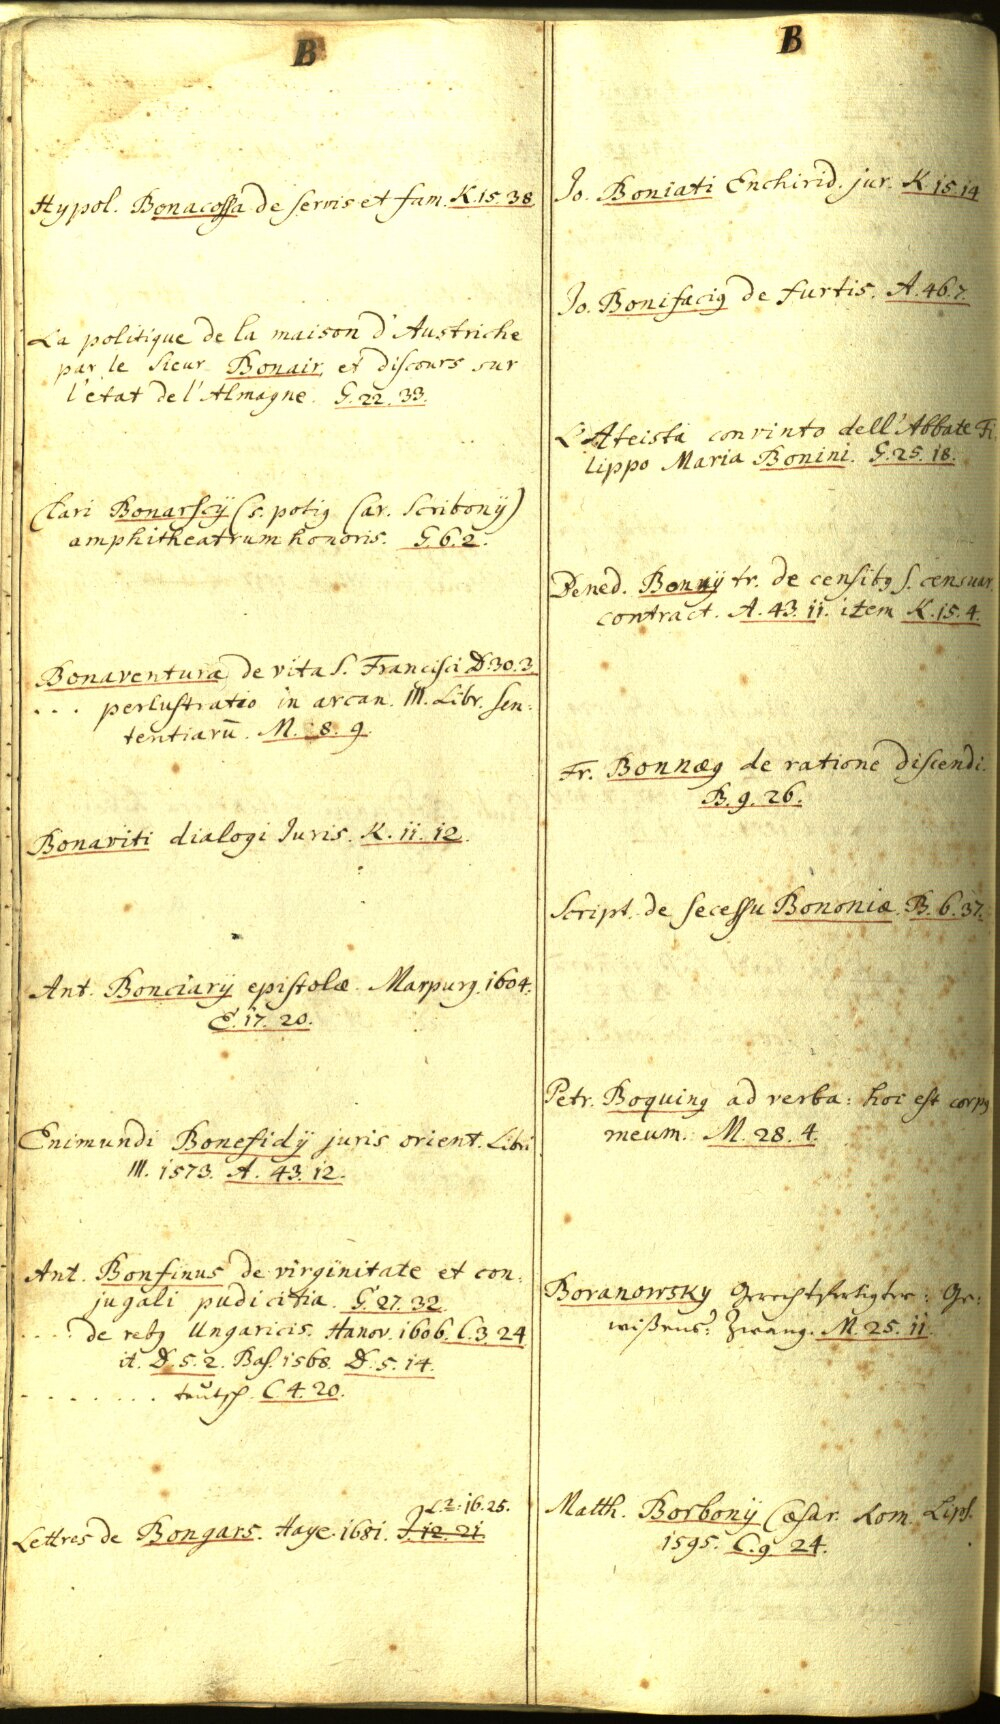 B
Hypol. Bonacossa de servis et fam. K. 15. 38
La politique de la maison d'Austriche
par le Sieur Bonair, et discours sur
l'etat de l'Almagne. G. 22. 33.
Clari Bonarscij (s. potiꝰ Car. Scribonij)
amphitheatrum honoris. G. 6. 2.
Bonaventura de vita S. Francisci D. 30. 3.
. . . perlustratio in arcan. III. Libr. sen:
tentiarū. M. 8. 9.
Bonaviti dialogi Juris. K. 11. 12.
Ant. Bonciarij epistolæ. Marpurg. 1604.
E. 17. 20.
Enimundi Bonefidij juris orient. Libri
III. 1573. A. 43. 12.
Ant. Bonfinus de virginitate et con:
jugali pudicitia. G. 27. 32.
. . . . de rebꝰ Ungaricis. Hanov. 1606. C. 3. 24
it. D. 5. 2. Bas. 1568. D. 5. 14.
. . . . . . . . teutsch. C. 4. 20.
L. 2. 16. 25.
Lettres de Bongars. Haye. 1681. J. 12. 21.
B
Jo. Boniati Enchirid. jur. K. 15. 14
Jo. Bonifaciꝰ de furtis. A. 46. 7.
L'Ateista convinto dell'Abbate Fi
lippo Maria Bonini. G. 25. 18.
Bened. Bonnij tr. de censibꝰ s. censuar.
contract. A. 43. 11. item K. 15. 4.
Fr. Bonnæꝰ de ratione discendi.
B. 9. 26.
Script. de secessu Bononiæ. B. 6. 37.
Petr. Boquinꝰ ad verba: hoc est corpꝰ
meum. M. 28. 4.
Boranowsky Gerechtfertigter: Ge:
wißens: Zwang. M. 25. 11.
Matth. Borbonij Cæsar. Rom. Lips.
1595. C. 9. 24.